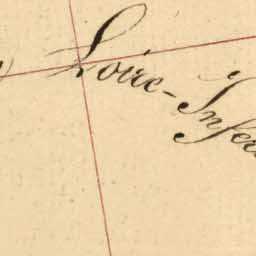 Loire-Infér